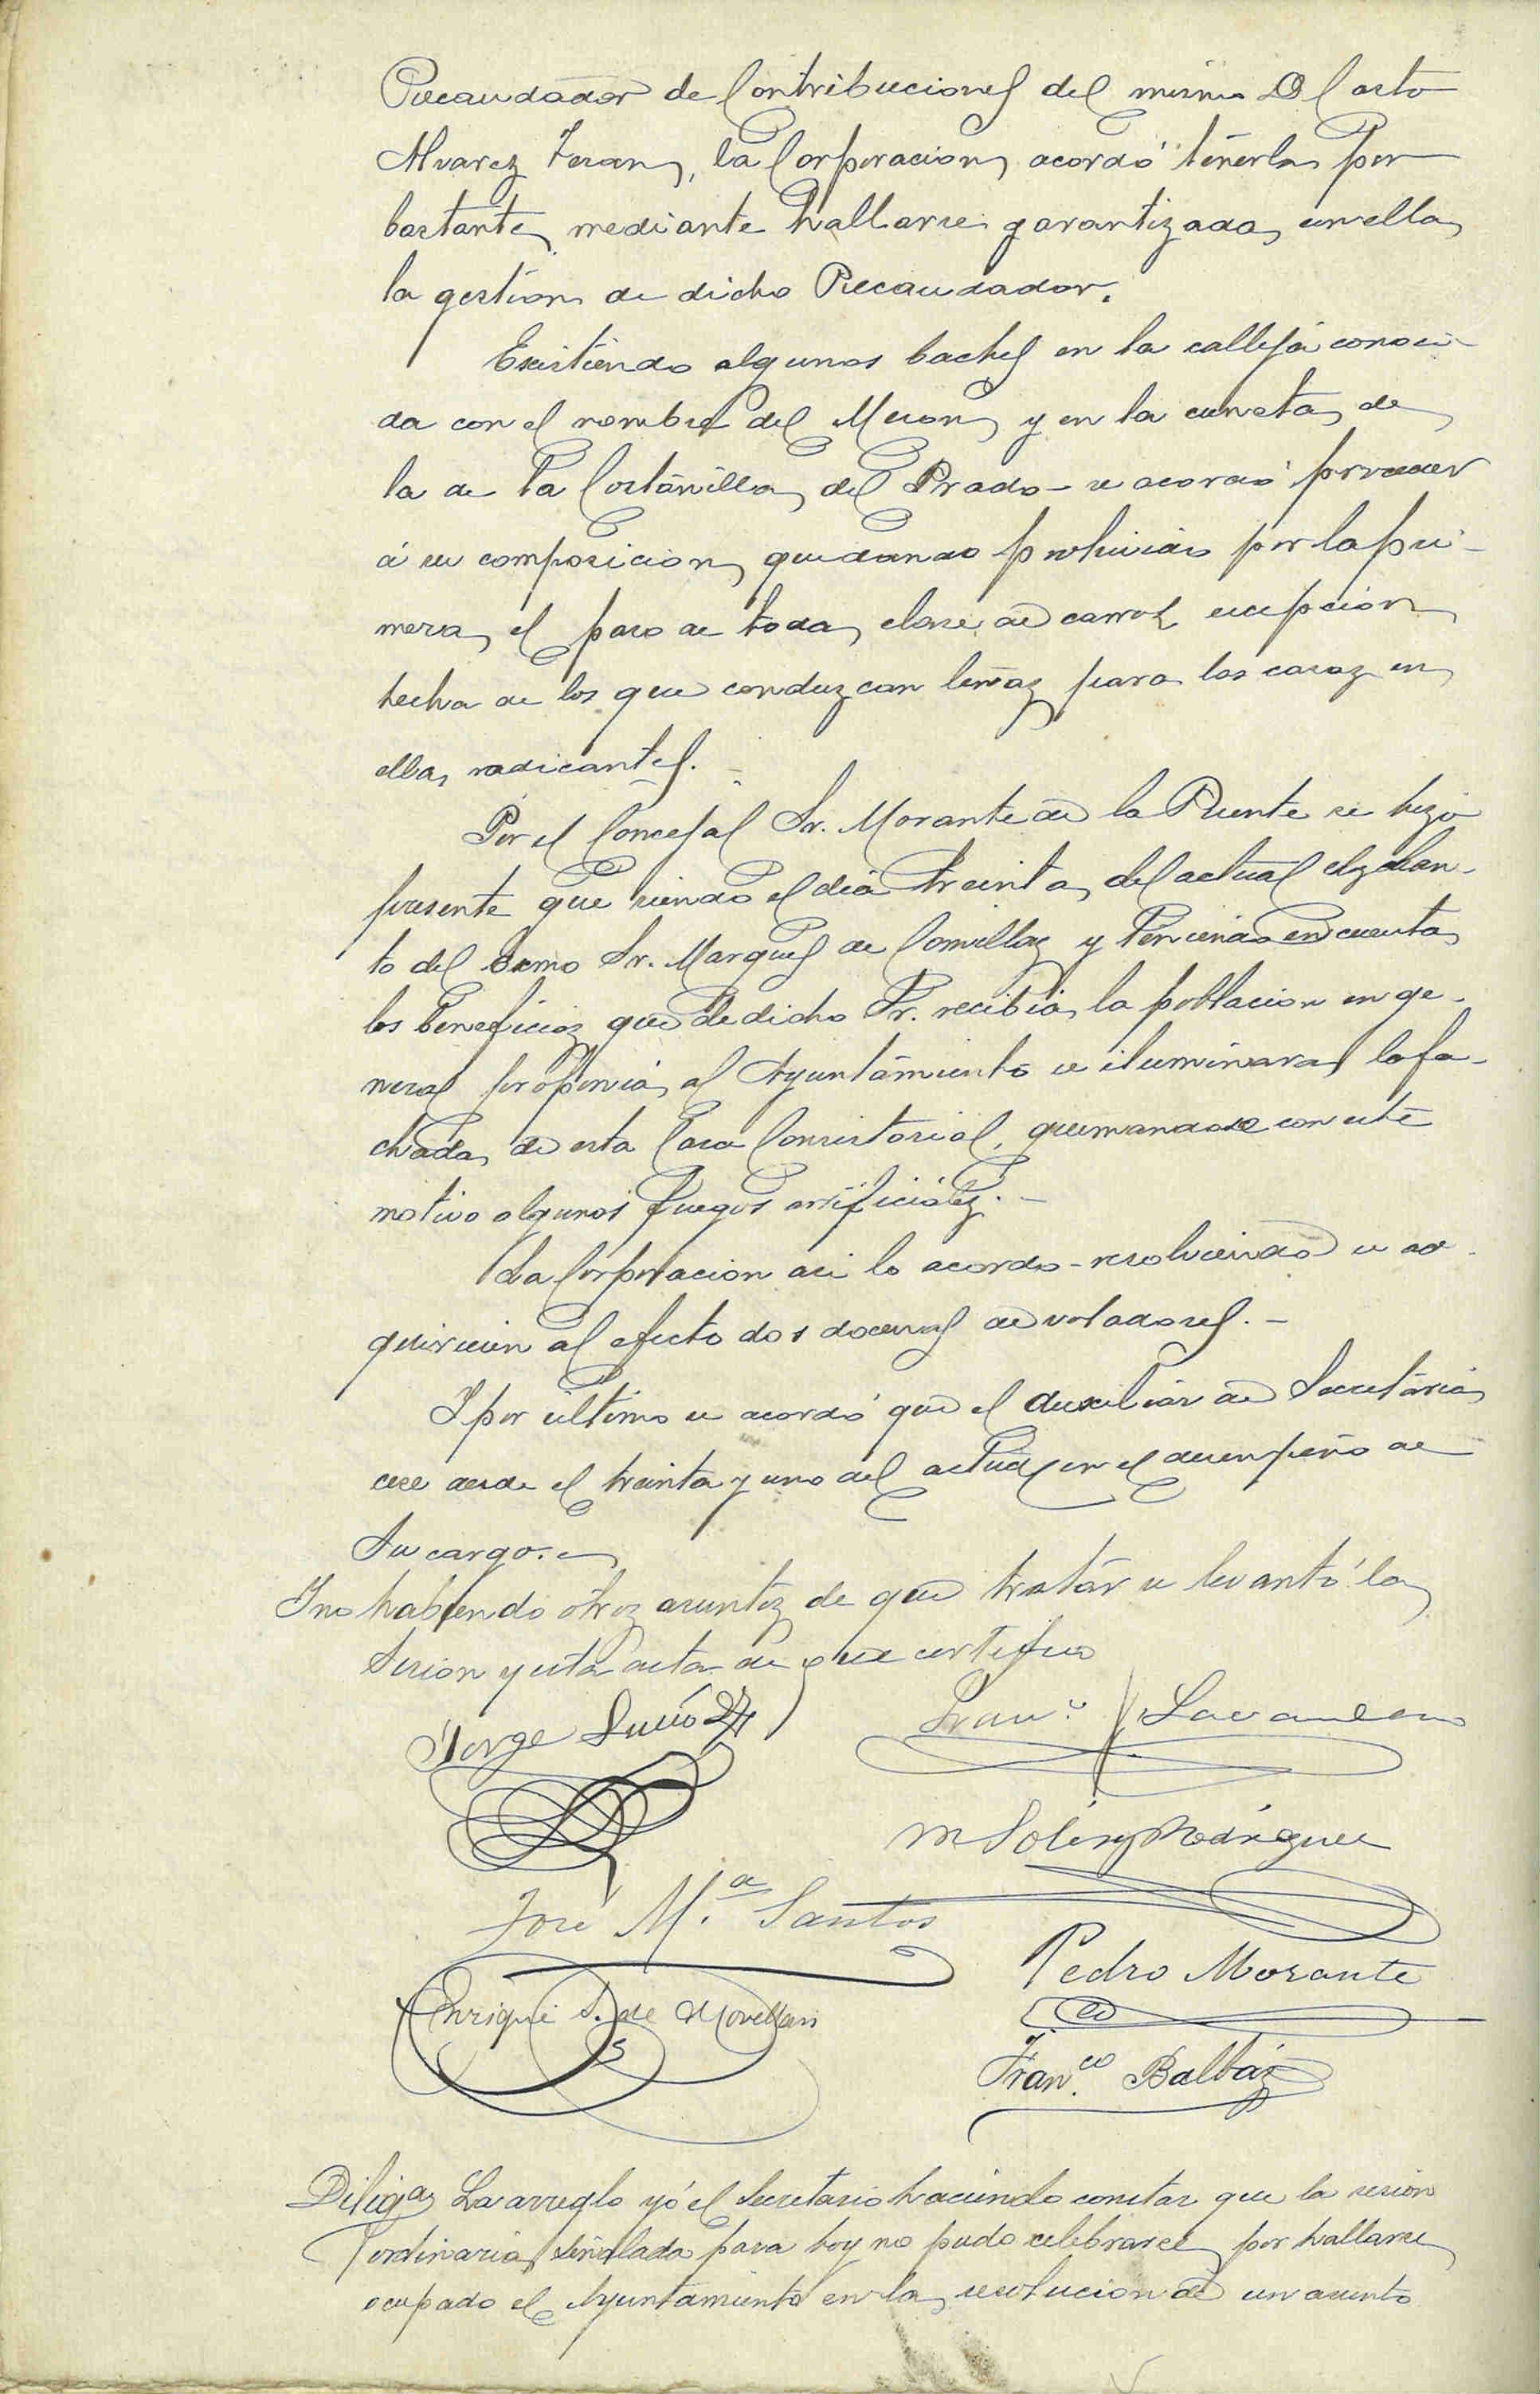 Recaudador de Contribuciones del mismo D Casto
Alvarez Teran, la Corporacion acordó tenerla por
bastante mediante hallarse garantizada con ella
la gestion de dicho Recaudador.
Existiendo algunos baches en la calleja conoci-
da con el nombre del Meson y en la cuneta de
la de la Costanilla del Prado - se acordó proveer
á su composicion, quedando prohivido por la pri-
mera, el paso de toda clase de carros, escepcion
hecha de los que conduzcan leñas para las casas en
ella radicantes. -
Por el Concejal Sr. Morante de la Puente se hizo
presente que siendo el dia treinta del actual el
to del Excmo Sr. Marques de Comillas y teniendo en cuenta
los beneficios que de dicho Sr. recibia la poblacion en ge-
neral proponia al Ayuntamiento se iluminara la fa-
chada de esta Casa Consistorial, quemandose con este
motivo algunos fuegos artificiales. -
La Corporacion asi lo acordo - resolviendo se ad-
quiriesen al efecto dos docenas de voladores. -
Y por último se acordó que el Auxiliar de Secretaria
cese desde el treinta y uno del actual en el desempeño de
su cargo.
Y no habiendo otros asuntos de que tratar se levantó la
sesion y esta acta de que certifico
Jorge
Fran.co
M Solis y Rodriguez
José M.a Santos
Pedro Morante
Enrique S. de Movellan
Fran.co Balbás
Dilig.a La arreglo yo el Secretario haciendo constar que la sesion
ordinaria señalada para hoy no pudo celebrarse por hallarse
ocupado el Ayuntamiento en la resolucion de un asunto